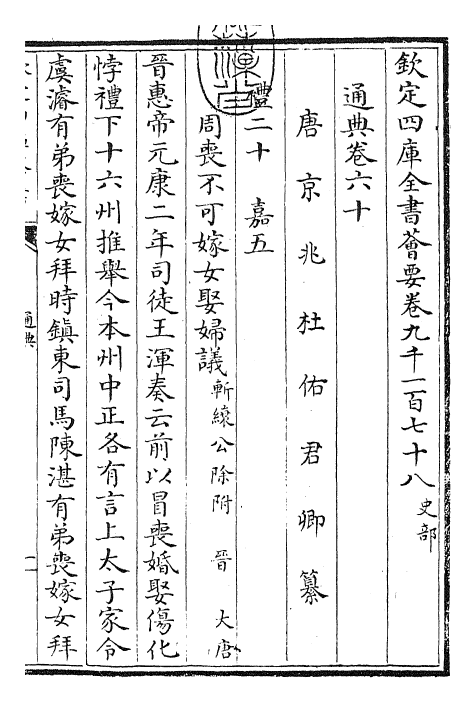 欽定四庫全書薈要卷九千一百七十八 史部
通典卷六十
唐京兆杜佑君卿纂
禮二十 嘉五
周喪不可嫁女娶婦議 斬縗公除附 晉 大唐
晉惠帝元康二年司徒王渾奏云前以冒喪婚娶傷化
悖禮下十六州推舉今本州中正各有言上太子家令
虞濬有弟喪嫁女拜時鎮東司馬陳湛有弟喪嫁女拜
通典
一